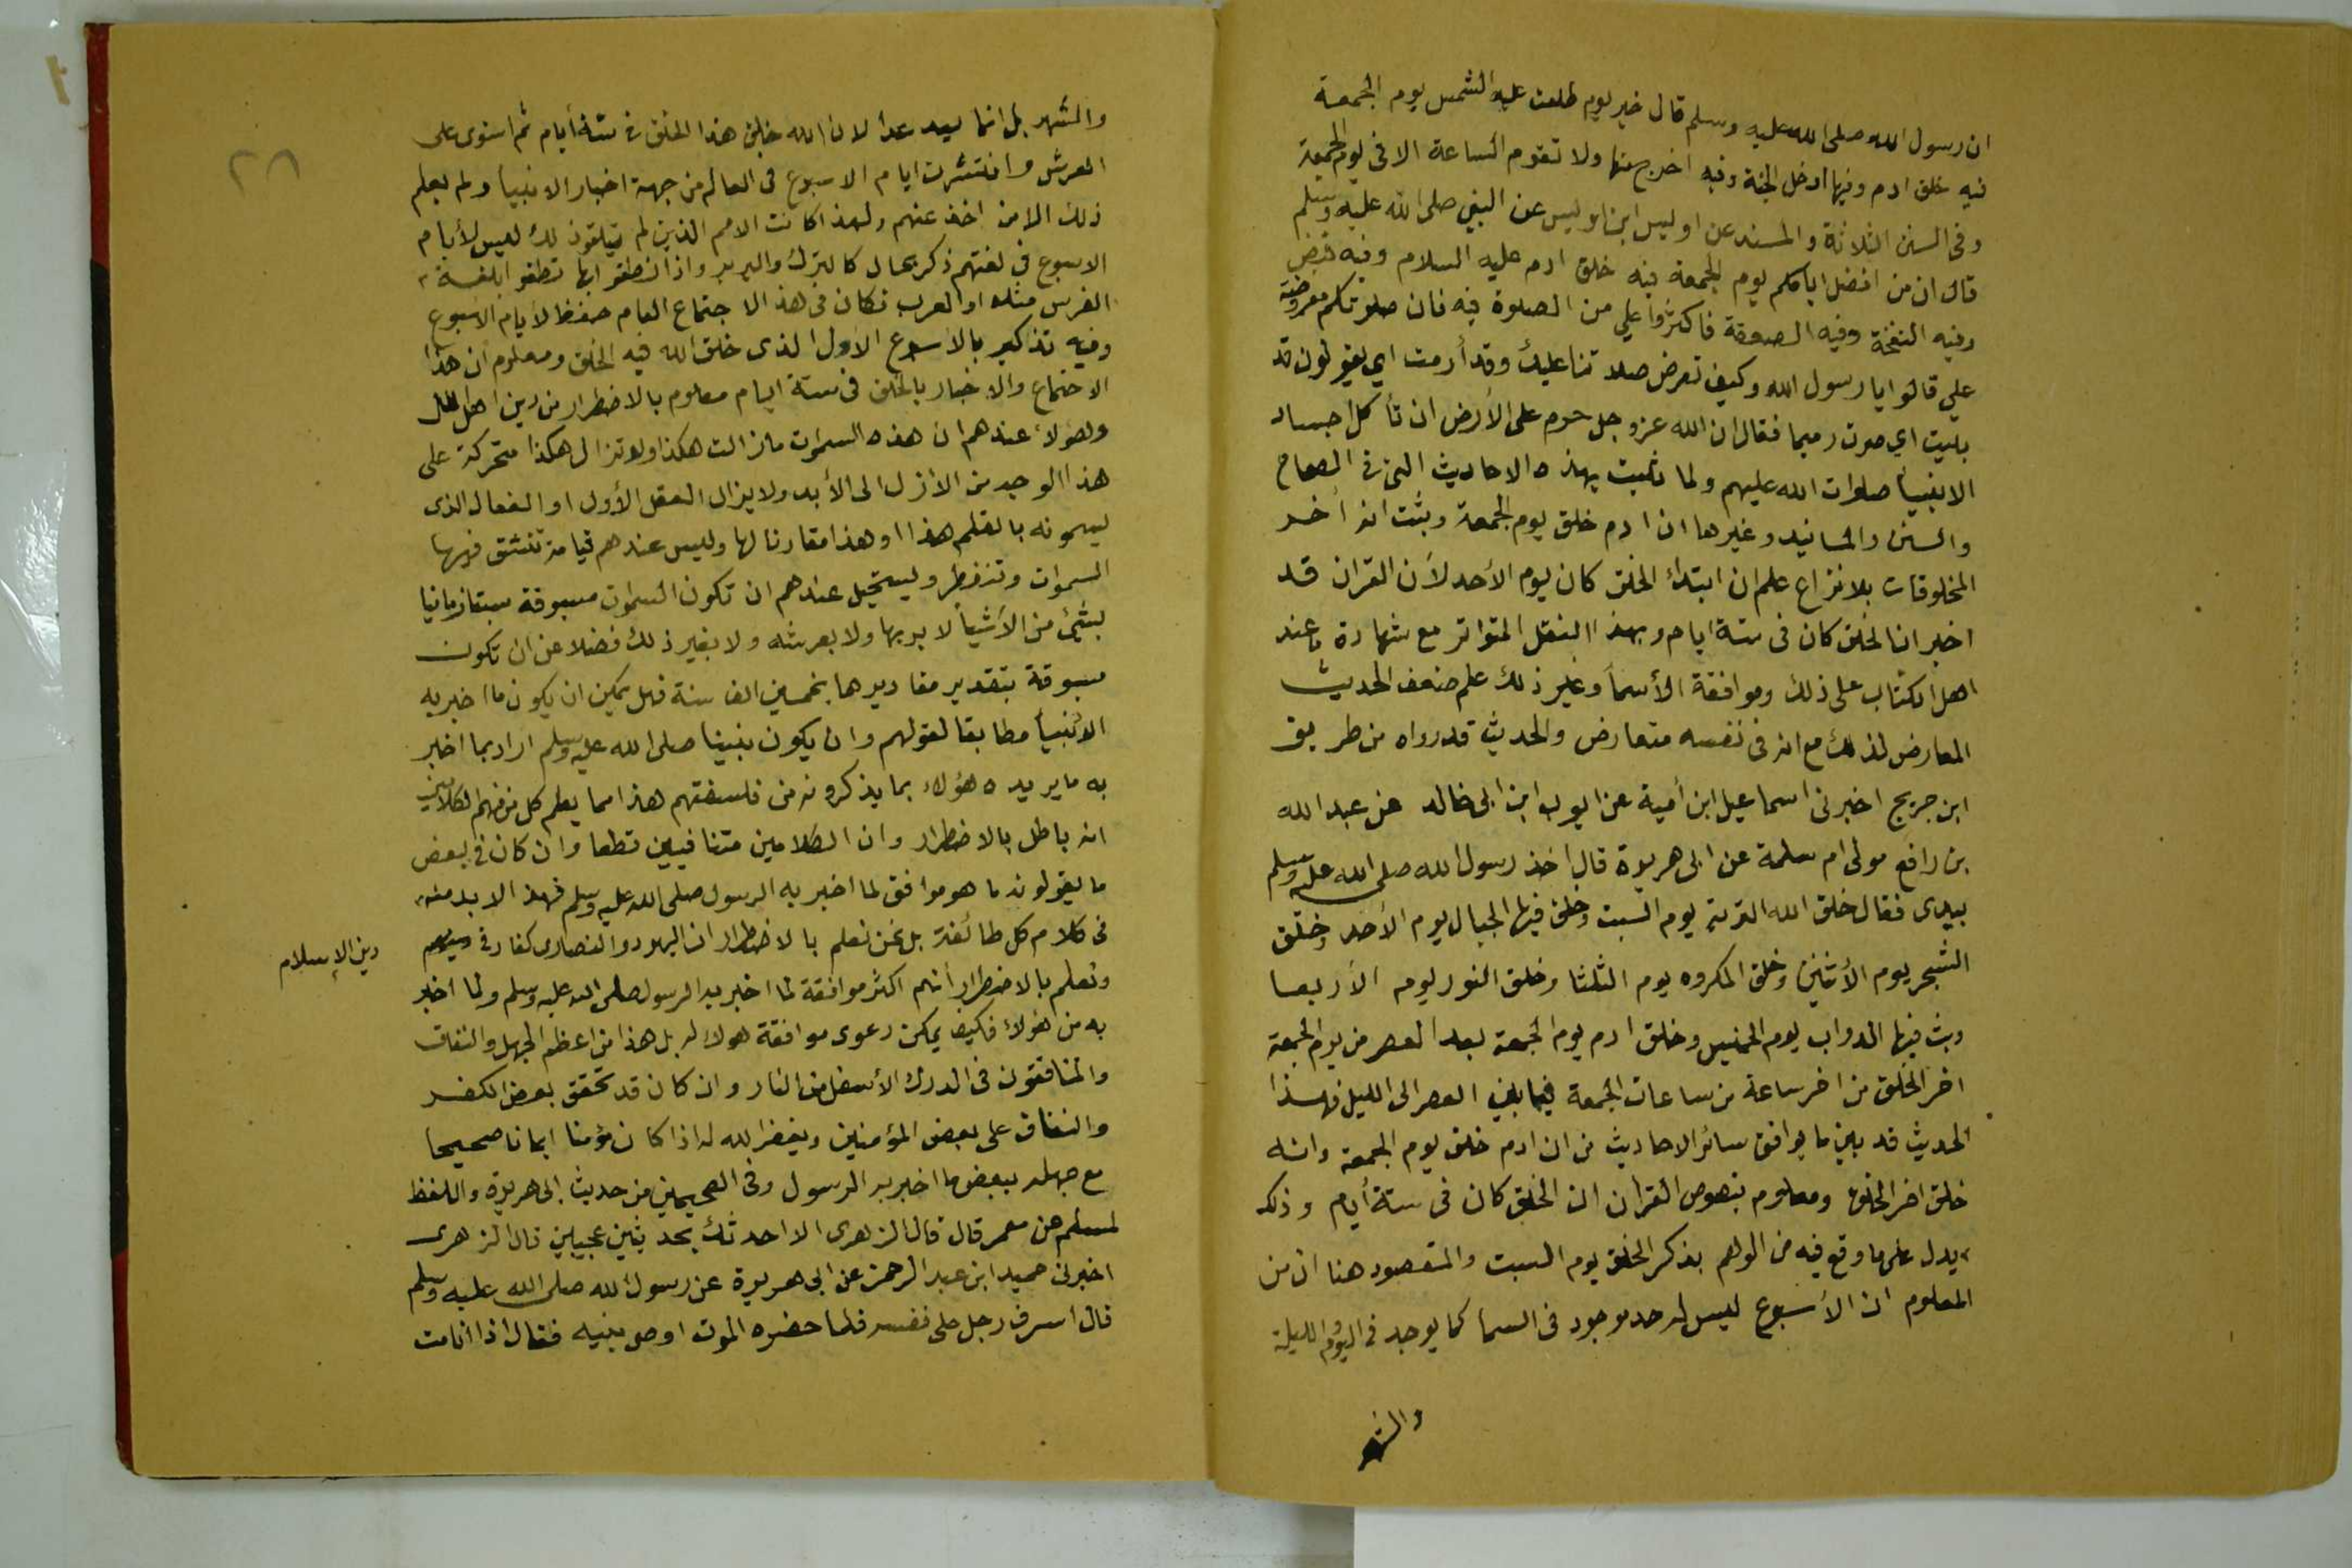 ان رسول الله صلى الله عليه وسلم قال خير يوم طلعت عليه الشمس يوم الجمعة
فيه خلق ادم وفيها ادخل الجنة وفيه اخرج منها ولا تقوم الساعة الا في يوم الجمعة
وفى السنن الثلاثة والمسند عن اوليس ابن اوليس عن النبي صلى الله عليه وسلم
قال ان من افضل ايامكم يوم الجمعة فيه خلق ادم عليه السلام وفيه قبض
وفيه النفخة وفيه الصعقة فاكثروا علي من الصلوة فيه فان صلوتكم معروضة
علي قالوا يا رسول الله وكيف تعرض صلاتنا عليك وقد أرمت اي يقولون قد
بليت اي صرت رميما فقال ان الله عز وجل حرم على الأرض ان تأكل اجساد
الانبيأ صلوات الله عليهم ولما ثبت بهذه الاحاديث التى في الصحاح
والسنن والمسانيد وغيرها ان ادم خلق يوم الجمعة وثبت انه أخر
المخلوقات بلا نزاع علم ان ابتدأ الخلق كان يوم الأحد لأن القران قد
اخبر ان الخلق كان فى ستة ايام وبهذا النقل المتواتر مع شهادة ما عند
اهل الكتاب على ذلك وموافقة الأسمأ وغير ذلك علم ضعف الحديث
المعارض لذلك مع انه فى نفسه متعارض والحديث قد رواه من طريق
ابن جريج اخبرنى اسماعيل ابن أمية عن ايوب ابن ابى خالد عن عبد الله
بن رافع مولى ام سلمة عن ابى هريرة قال اخذ رسول الله صلى الله عليه وسلم
بيدى فقال خلق الله التربة يوم السبت وخلق فيها الجبال يوم الأحد وخلق
الشجر يوم الأثنين وخلق المكروه يوم الثلثا وخلق النور يوم الأربعا
وبث فيها الدواب يوم الخميس وخلق ادم يوم الجمعة بعد العصر من يوم الجمعة
اخر الخلق من اخر ساعة من ساعات الجمعة فيما بين العصر الى الليل فهذا
الحديث قد بين ما يوافق سائر الاحاديث من ان ادم خلق يوم الجمعة وانه
خلق اخر الخلق ومعلوم بنصوص القرأن ان الخلق كان فى ستة أيام وذلك
يدل على ما وقع فيه من الوهم بذكر الخلق يوم السبت والمقصود هنا ان من
المعلوم ان الأسبوع ليس له حد موجود فى السما كما يوجد في اليوم والليلة
والشهر
٢٨
والشهر بل انما يعد عدا لان الله خلق هذا الخلق في ستة أيام ثم استوى على
العرش وانتشرت ايام الاسبوع فى العالم من جهة اخبار الانبيأ ولم يعلم
ذلك الا من اخذ عنهم ولهذا كانت الامم الذين لم يتلقوا ذلك ليس لأيام
الاسبوع في لغتهم ذكر بحال كالترك والبربر واذا نطقوا بها نطقوا بلغة
الفرس مثلا او العرب فكان فى هذا الاجتماع العام حفظ لأيام الأسبوع
وفيه تذكير بالاسبوع الاول الذى خلق الله فيه الخلق ومعلوم ان هذا
الاجتماع والاخبار بالخلق فى ستة ايام معلوم بالاضطرار من دين اهل الملل
وهؤلاء عندهم ان هذه السموات مازالت هكذا ولا تزال هكذا متحركة على
هذا الوجه من الأزل الى الأبد ولا يزال العقل الأول او الفعال الذى
يسمونه بالقلم هذا او هذا مقارنا لها وليس عندهم قيامة تنشق فيها
السموات وتنفطر ويستحيل عندهم ان تكون السموات مسبوقة سبقا زمانيا
بشئ من الأشيأ لا بربها ولا بعرشه ولا بغير ذلك فضلا عن ان تكون
مسبوقة بتقدير مقاديرها بخمسين الف سنة فهل يمكن ان يكون ما اخبر به
الأنبيأ مطابقا لقولهم وان يكون نبينا صلى الله عليه وسلم اراد بما اخبر
به ما يريده هؤلاء بما يذكرونه من فلسفتهم هذا مما يعلم كل من فهم الكلامين
انه باطل بالاضطرار وان الكلامين متنافيين قطعا وان كان في بعض
ما يقولونه ما هو موافق لما اخبر به الرسول صلى الله عليه وسلم فهذا لا بد منه
فى كلام كل طائفة بل نحن نعلم بالاضطرار ان اليهود والنصارى كفار في
دين الإسلام
ونعلم بالاضطرار أنهم اكثر موافقة لما اخبر به الرسول صلى الله عليه وسلم ولما اخبر
به من هؤلاء فكيف يمكن دعوى موافقة هولاء له بل هذا من اعظم الجهل والنفاق
والمنافقون فى الدرك الأسفل من النار وان كان قد تحقق بعض الكفر
والنفاق على بعض المؤمنين ويغفر الله له اذا كان مؤمنا ايمانا صحيحا
مع جهله ببعض ما اخبر به الرسول وفى الصحيحين من حديث ابى هريرة واللفظ
لمسلم عن معمر قال قال الزهرى الا احدثك بحديثين عجيبين قال الزهرى
اخبرنى حميد ابن عبد الرحمن عن ابى هريرة عن رسول الله صلى الله عليه وسلم
قال اسرف رجل على نفسه فلما حضره الموت اوصى بنيه فقال اذا انا مت